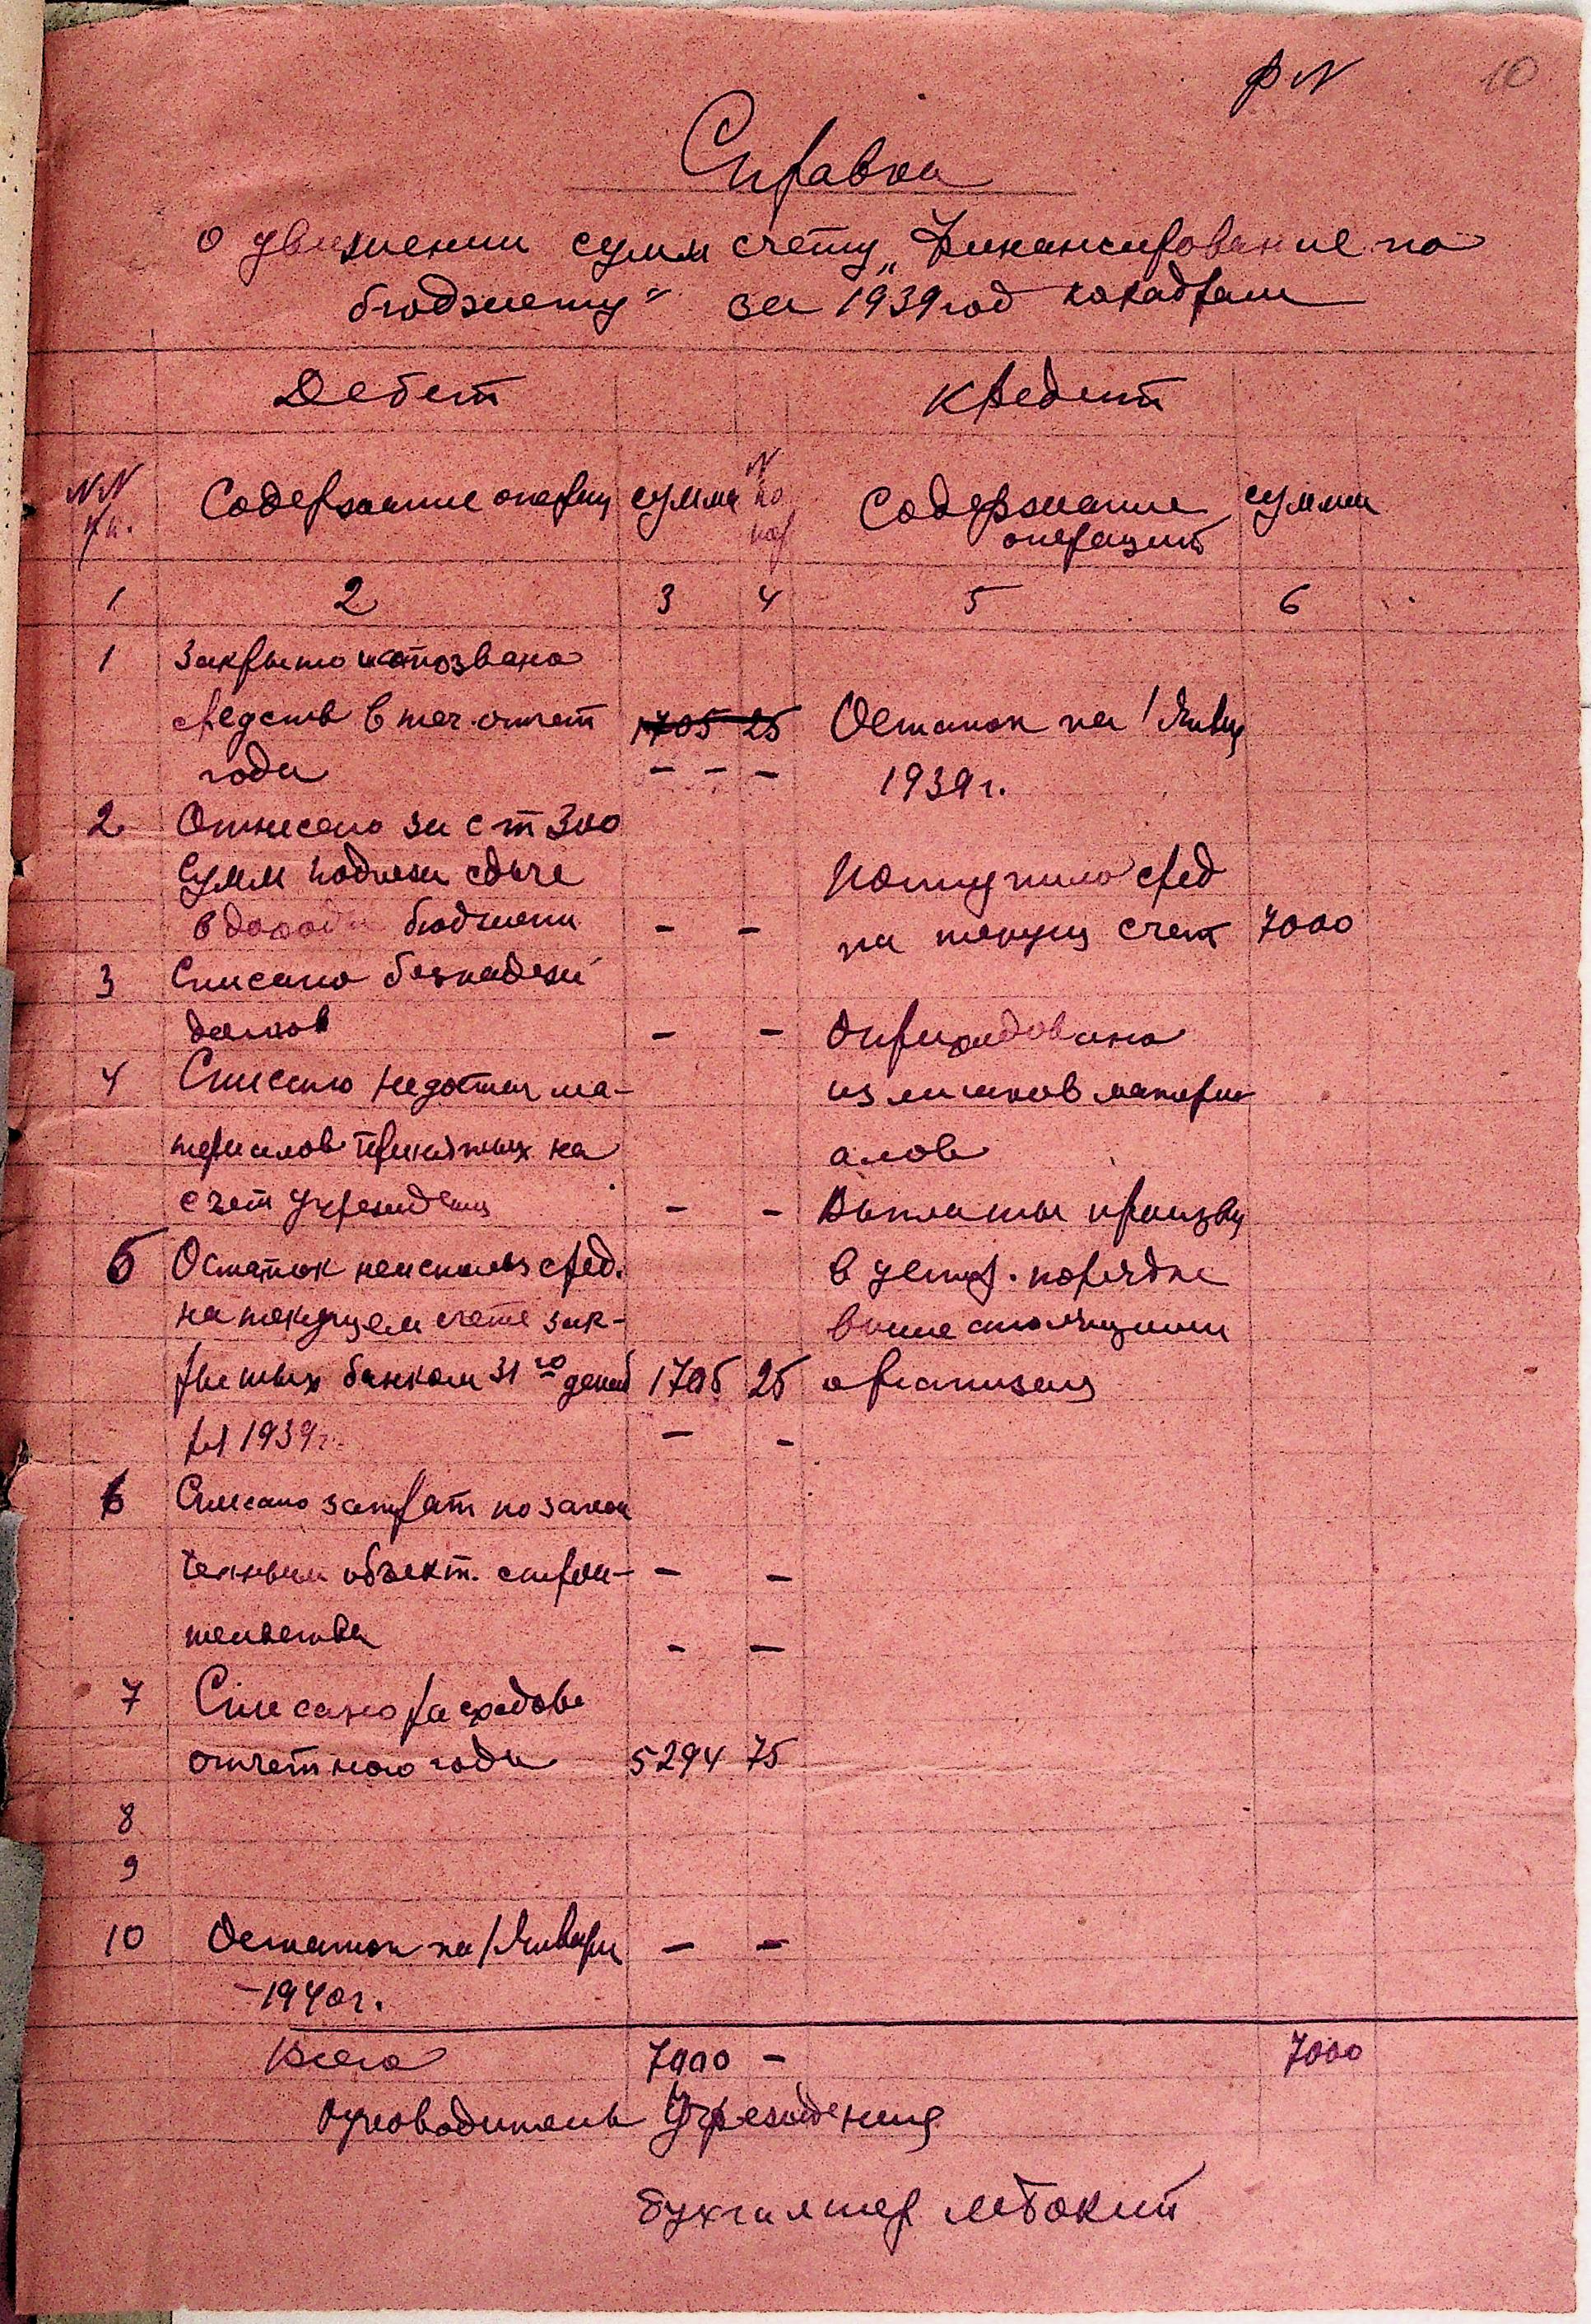 10
Справка
о движении сумм счету „Финансирование по
бюджету" за 1939 год
Дебет Кредит
NN пп. Содержание операц сумма N по Содержание операций сумма
1 2 3 4 5 6
1 Закрыто и отозвано
средств в теч. отчет 1705 25 Остаток на 1 Янвц
года - - - 1939 г.
2 Отнесено за ст 300
сумм подлеж сдаче Поступило сред
в доходы бюджета - - на текущ счет 7000
3 Списано безнадежн
долгов - - Оприходовано
4 Списано недостач ма- излишков матери
териалов принятых на алов
счет учреждени - - Выплаты произвц
5 Остаток неиспольз сред. в устан. порядке
на текущем счете зак- выше стоящими
рытых банком 31го декаб 1705 25 организац
ря 1939 г. - -
6 Списано затрат по закон
ченным объект. строи- - -
тельства - -
7 Списано расходов
отчетного года 5294 75
8
9
10 Остаток на 1 Января - -
-1940 г.
Всего 7000 - 7000
Руководитель Учреждения
бухгалтер